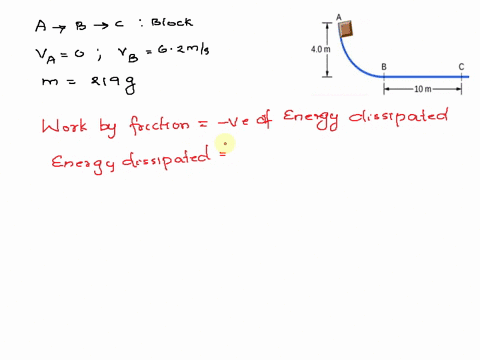 A → B → C : Block
V_A = 0 ; V_B = 6.2 m/s
m = 219 g
Work by friction = -ve of Energy dissipated
Energy dissipated =
A
4.0 m
B
C
10 m